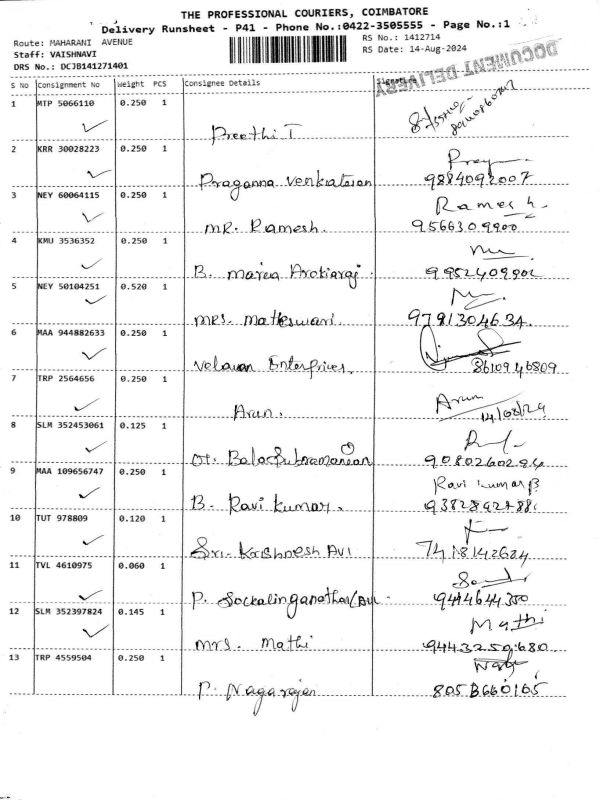 THE PROFESSIONAL COURIERS, COIMBATORE
Delivery Runsheet - P41 - Phone No.:0422-3505555 - Page No.:1
Route: MAHARANI AVENUE
RS No.: 1412714
Staff: VAISHNAVI
RS Date: 14-Aug-2024
DRS No.: DCJB141271401
DOCUMENT DELIVERY
S No Consignment No Weight PCS Consignee Details Signature
1 MTP 5066110 0.250 1
Preethi T
2 KRR 30028223 0.250 1
Praganna Venkatesan 9884092007
3 NEY 60064115 0.250 1 Ramesh
MR. Ramesh. 9566309900
4 KMU 3536352 0.250 1
B. Maria Arokiaraj. 9952409902
5 NEY 50104251 0.520 1
MRS. Matheswari. 9791304634.
6 MAA 944882633 0.250 1
Velavan Enterprises. 8610946809
7 TRP 2564656 0.250 1 Arun
Arun. 14/08/24
8 SLM 352453061 0.125 1
Ot. Balasubramanian 9080260294
9 MAA 109656747 0.250 1 Ravi Kumar B
B. Ravi Kumar.
10 TUT 978809 0.120 1
Sri. Krishnesh Avl 7418142624
11 TVL 4610975 0.060 1
P. Sockalinganathan (Avl 9444644350
12 SLM 352397824 0.145 1 Mathi
Mrs. Mathi 9443250680
13 TRP 4559504 0.250 1
P. Nagarajan